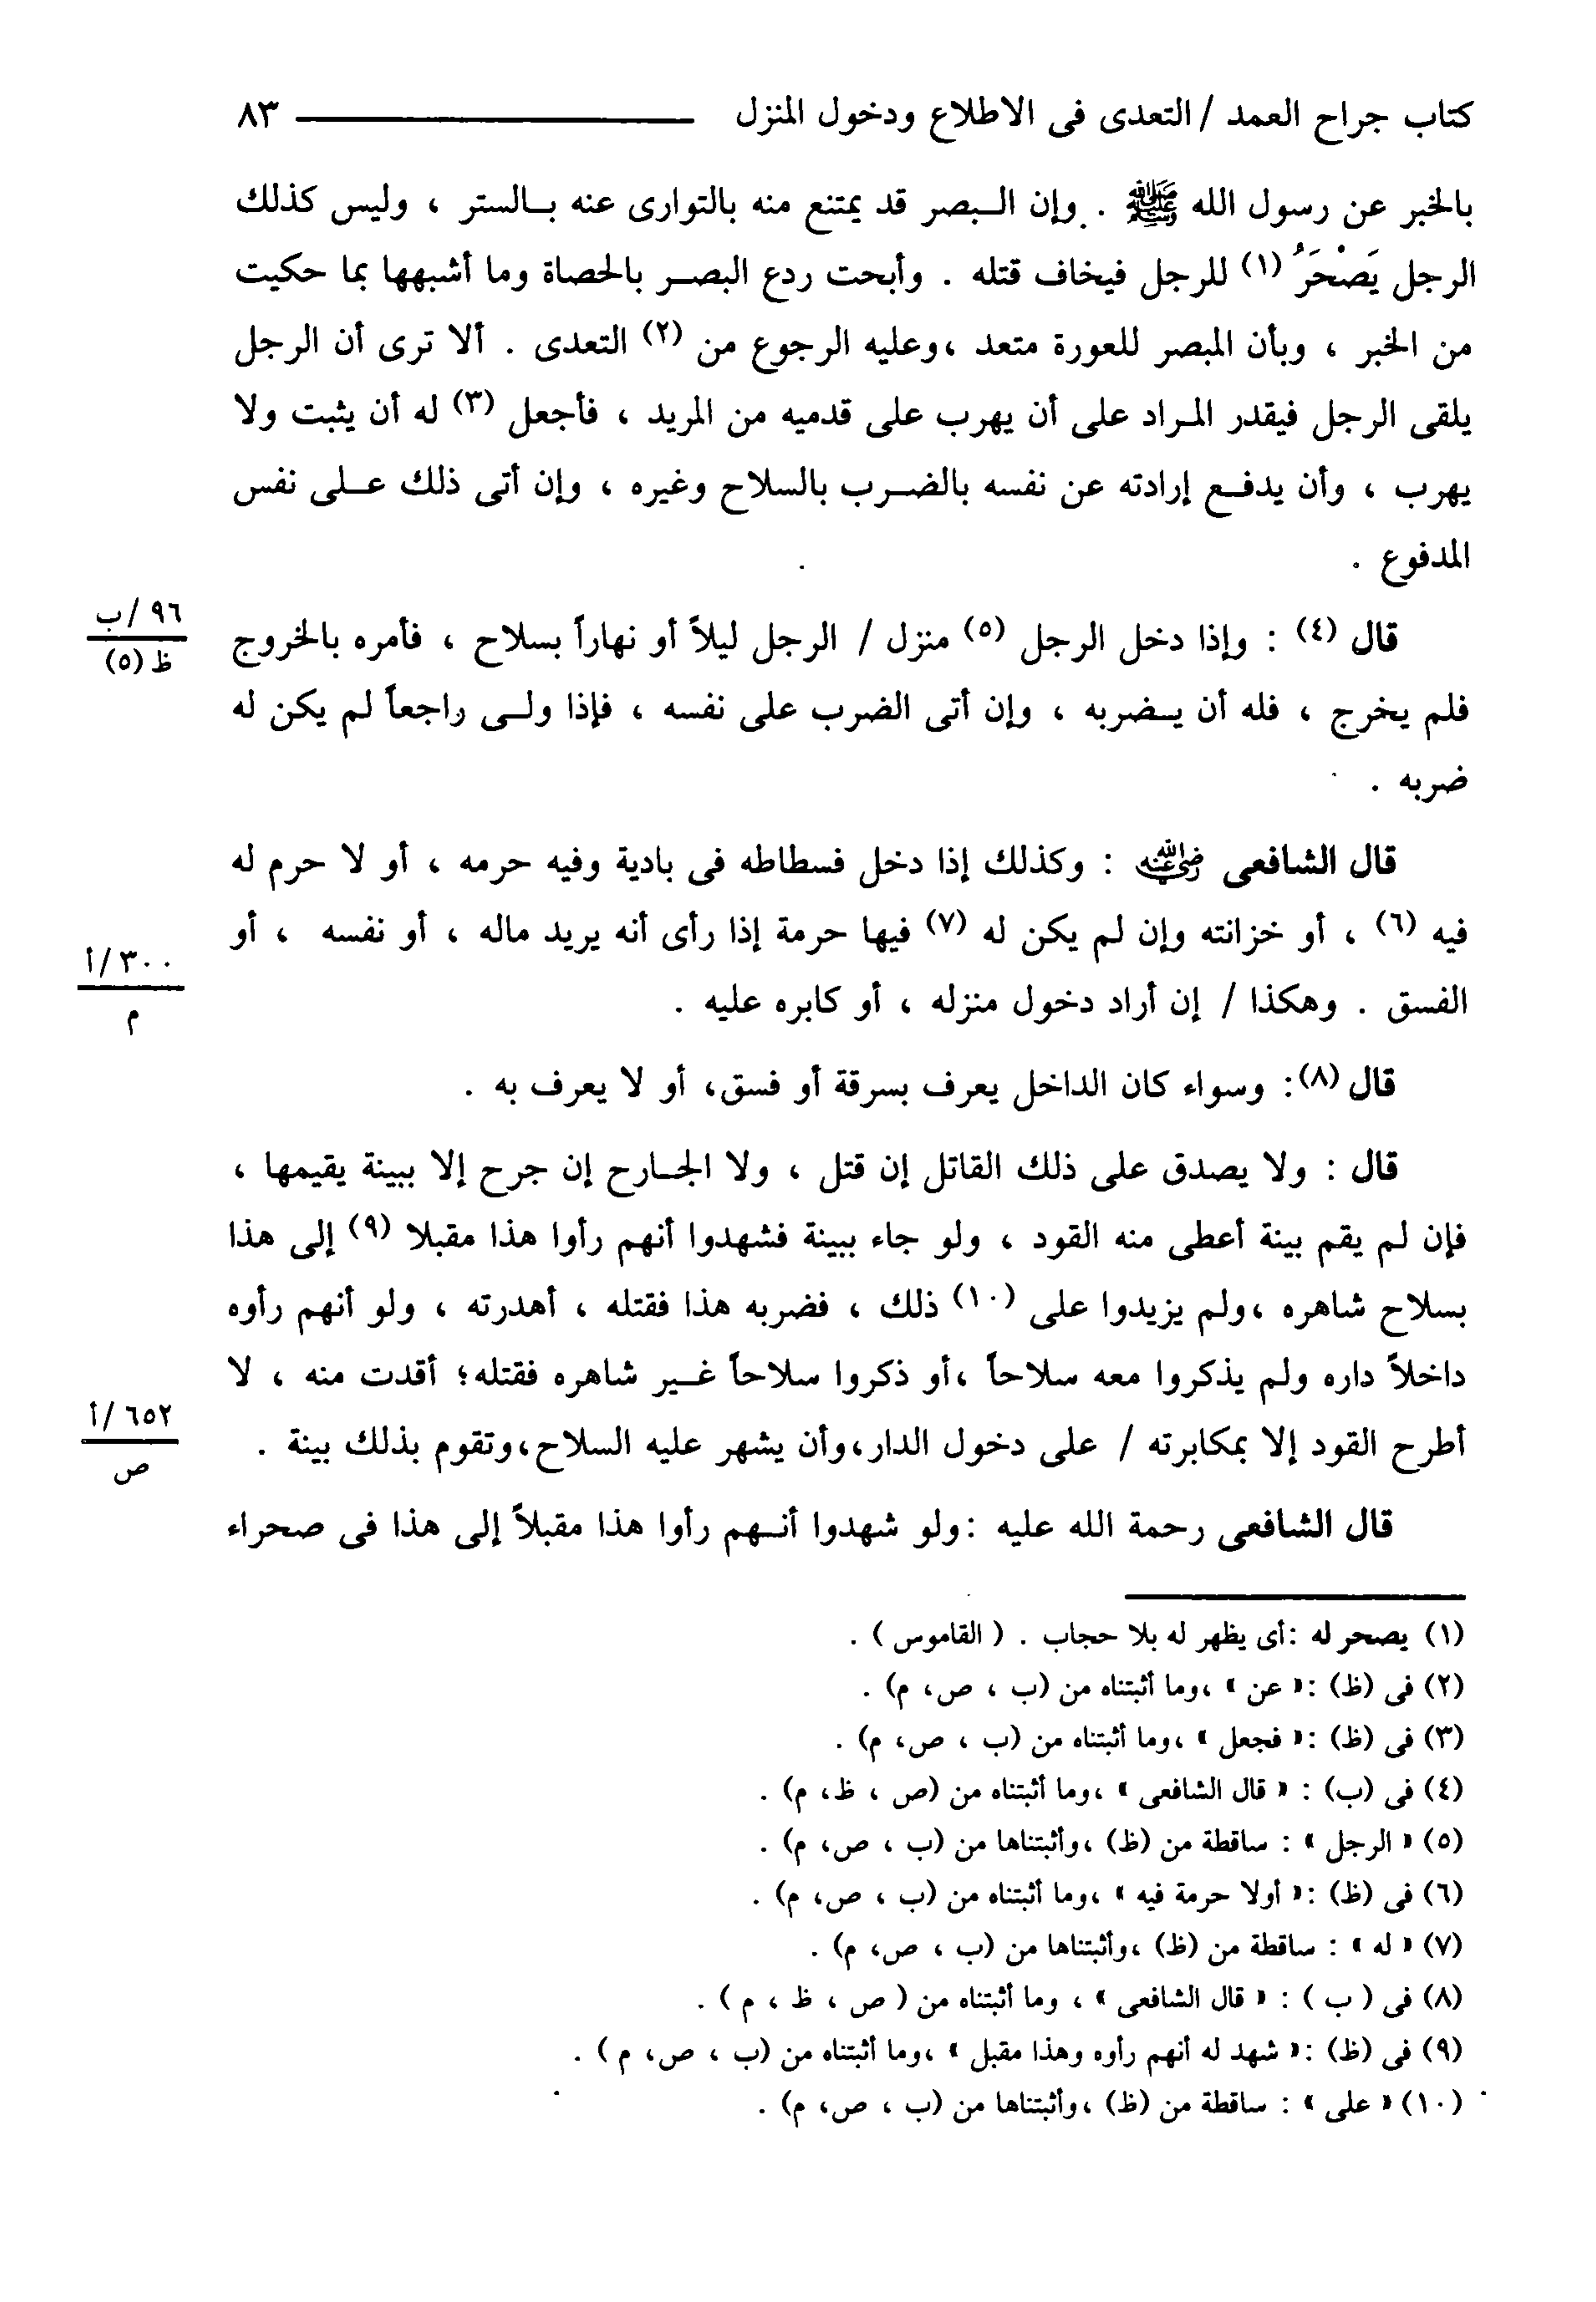 كتاب جراح العمد / التعدى فى الاطلاع ودخول المنزل ٨٣
بالخبر عن رسول الله ﷺ . وإن البصر قد يمتنع منه بالتوارى عنه بالستر ، وليس كذلك
الرجل يَصْحَرُ (١) للرجل فيخاف قتله . وأبحت ردع البصر بالحصاة وما أشبهها بما حكيت
من الخبر ، وبأن المبصر للعورة متعد ،وعليه الرجوع من (٢) التعدى . ألا ترى أن الرجل
يلقى الرجل فيقدر المراد على أن يهرب على قدميه من المريد ، فأجعل (٣) له أن يثبت ولا
يهرب ، وأن يدفع إرادته عن نفسه بالضرب بالسلاح وغيره ، وإن أتى ذلك على نفس
المدفوع .
قال (٤) : وإذا دخل الرجل (٥) منزل / الرجل ليلاً أو نهاراً بسلاح ، فأمره بالخروج
٩٦/ب
ظ (٥)
فلم يخرج ، فله أن يضربه ، وإن أتى الضرب على نفسه ، فإذا ولى راجعاً لم يكن له
ضربه .
قال الشافعى رضي الله عنه : وكذلك إذا دخل فسطاطه فى بادية وفيه حرمه ، أو لا حرم له
فيه (٦) ، أو خزانته وإن لم يكن له (٧) فيها حرمة إذا رأى أنه يريد ماله ، أو نفسه ، أو
٣٠٠/أ
م
الفسق . وهكذا / إن أراد دخول منزله ، أو كابره عليه .
قال (٨): وسواء كان الداخل يعرف بسرقة أو فسق، أو لا يعرف به .
قال : ولا يصدق على ذلك القاتل إن قتل ، ولا الجارح إن جرح إلا ببينة يقيمها ،
فإن لم يقم بينة أعطى منه القود ، ولو جاء ببينة فشهدوا أنهم رأوا هذا مقبلا (٩) إلى هذا
بسلاح شاهره ،ولم يزيدوا على (١٠) ذلك ، فضربه هذا فقتله ، أهدرته ، ولو أنهم رأوه
داخلاً داره ولم يذكروا معه سلاحاً ،أو ذكروا سلاحاً غير شاهره فقتله؛ أقدت منه ، لا
٦٥٢/أ
ص
أطرح القود إلا بمكابرته / على دخول الدار،وأن يشهر عليه السلاح،وتقوم بذلك بينة .
قال الشافعى رحمة الله عليه :ولو شهدوا أنهم رأوا هذا مقبلاً إلى هذا فى صحراء
(١) يصحر له :أى يظهر له بلا حجاب . ( القاموس ) .
(٢) فى (ظ) :« عن » ،وما أثبتناه من (ب ، ص، م) .
(٣) فى (ظ) :« فجعل » ،وما أثبتناه من (ب ، ص، م) .
(٤) فى (ب) : « قال الشافعى » ،وما أثبتناه من (ص ، ظ، م) .
(٥) « الرجل » : ساقطة من (ظ) ،وأثبتناها من (ب ، ص، م) .
(٦) فى (ظ) :« أولا حرمة فيه » ،وما أثبتناه من (ب ، ص، م) .
(٧) « له » : ساقطة من (ظ) ،وأثبتناها من (ب ، ص، م) .
(٨) فى ( ب ) : « قال الشافعى » ، وما أثبتناه من ( ص ، ظ ، م ) .
(٩) فى (ظ) :« شهد له أنهم رأوه وهذا مقبل » ،وما أثبتناه من (ب ، ص، م ) .
(١٠) « على » : ساقطة من (ظ) ،وأثبتناها من (ب ، ص، م) .